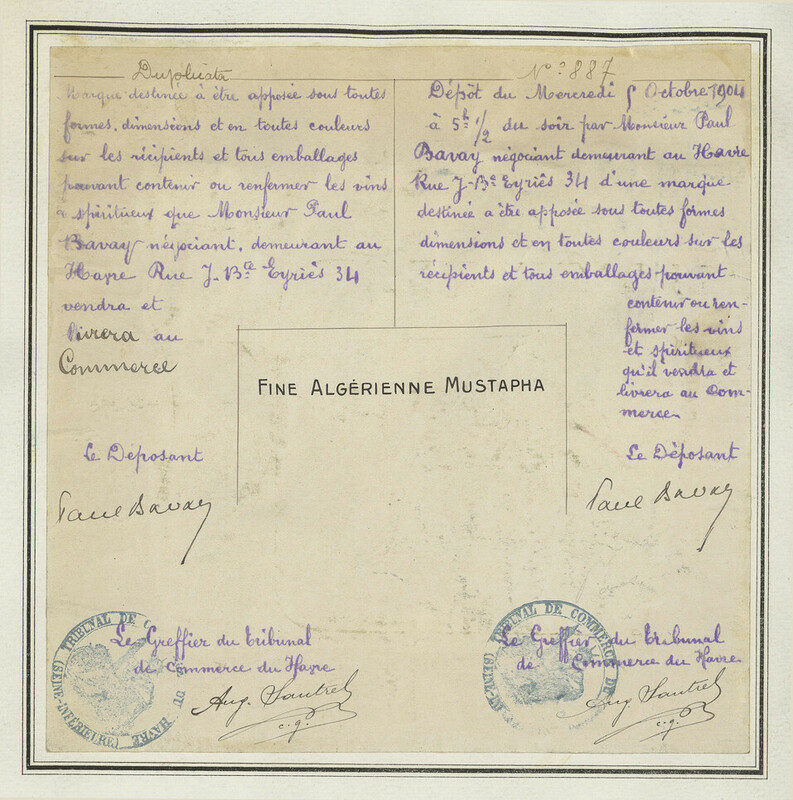 Duplicata
Marque destinée à être apposée sous toutes
formes, dimensions et en toutes couleurs
sur les récipients et tous emballages
pouvant contenir ou renfermer les vins
& spiritueux que Monsieur Paul
Bavay négociant, demeurant au
Havre Rue J-Bte Eyriès 34
vendra et
livrera au
Commerce
Le Déposant
Paul Bavay
Nº 887
Dépôt du Mercredi 5 Octobre 1904
à 5h 1/2 du soir par Monsieur Paul
Bavay négociant demeurant au Havre
Rue J-Bte Eyriès 34 d'une marque
destinée a être apposée sous toutes formes
dimensions et en toutes couleurs sur les
récipients et tous emballages pouvant
contenir ou ren-
fermer les vins
et spiritueux
qu'il vendra et
livrera au Com-
merce.
Le Déposant
Paul Bavay
FINE ALGÉRIENNE MUSTAPHA
Le Greffier du Tribunal
de Commerce du Havre
Aug. Sautrel
c.g.
TRIBUNAL DE C
DU HAVRE
(SEINE-INFÉRIEURE)
Le Greffier du Tribunal
de Commerce du Havre
Aug Sautrel
c.g.
TRIBUNAL DE COMMERCE DU